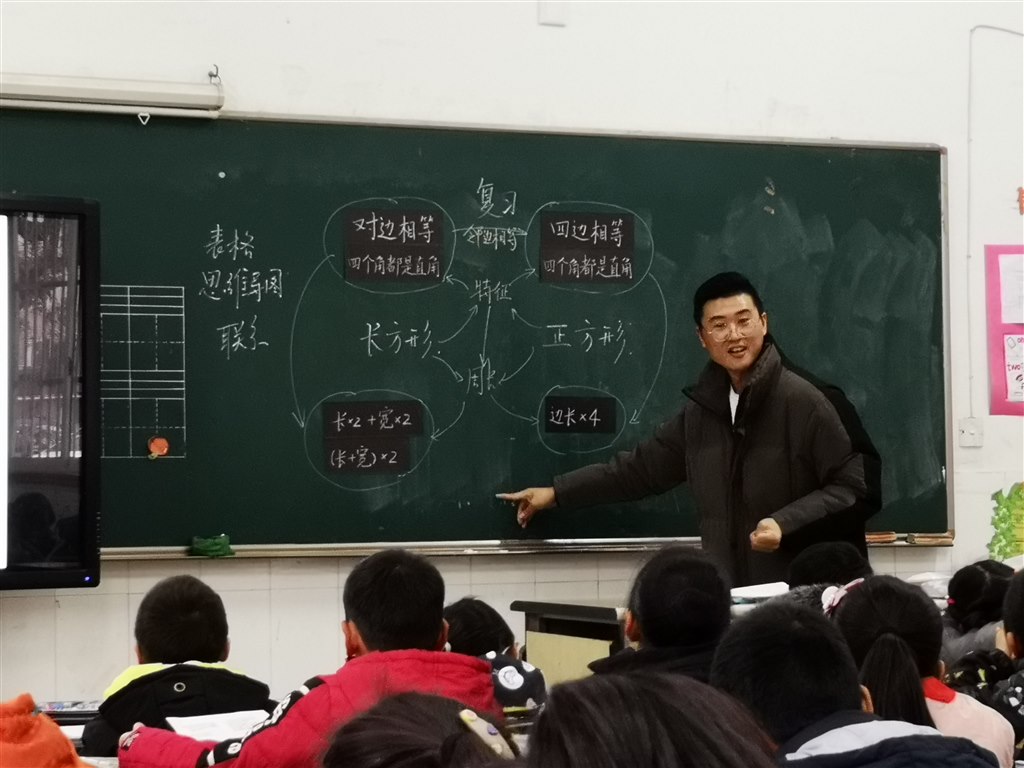 复习
对边相等
四个角都是直角
邻边相等
四边相等
四个角都是直角
表格
思维导图
联系
特征
长方形:
正方形:
周长
长×2+宽×2
(长+宽)×2
边长×4